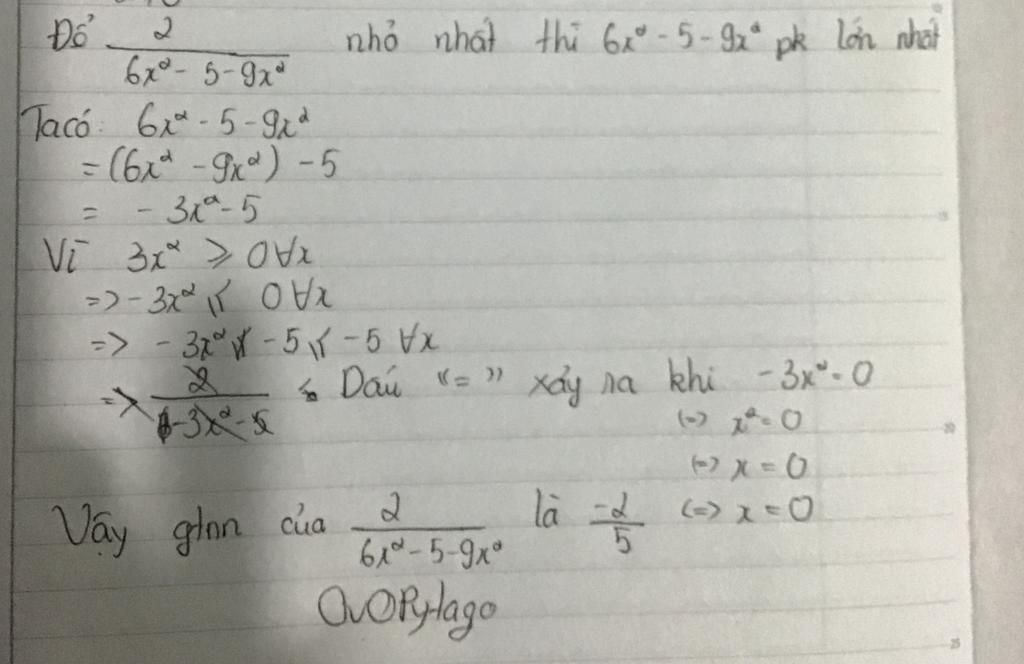 Để 2/(6x² - 5 - 9x²) nhỏ nhất thì 6x² - 5 - 9x² pk lớn nhất
Ta có: 6x² - 5 - 9x²
= (6x² - 9x²) - 5
= - 3x² - 5
Vì 3x² ≥ 0 ∀x
=> - 3x² ≤ 0 ∀x
=> - 3x² - 5 ≤ -5 ∀x
Dấu "=" xảy ra khi -3x² = 0
<=> x² = 0
<=> x = 0
Vậy gtnn của 2/(6x² - 5 - 9x²) là -2/5 <=> x = 0
OvOPytago